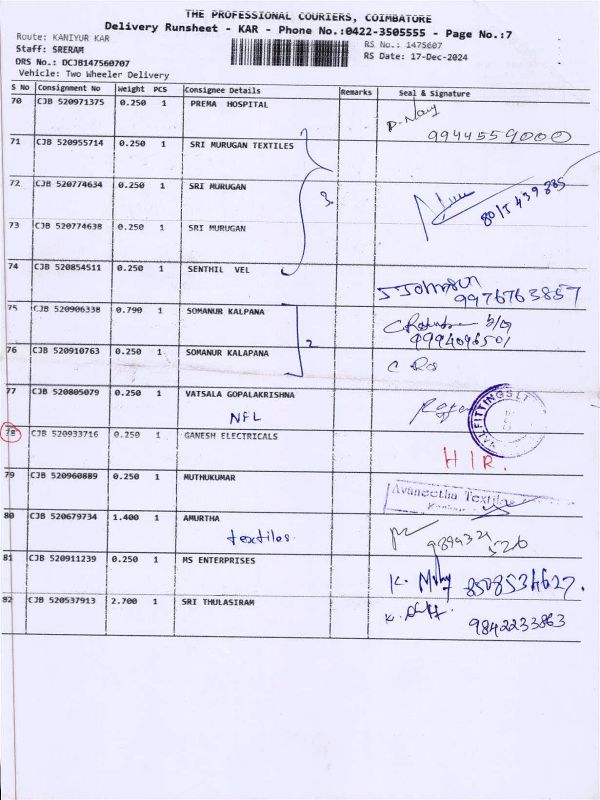 THE PROFESSIONAL COURIERS, COIMBATORE
Delivery Runsheet - KAR - Phone No.:0422-3505555 - Page No.:7
Route: KANIYUR KAR
RS No.: 1475607
Staff: SRERAM
RS Date: 17-Dec-2024
DRS No.: DCJB147560707
Vehicle: Two Wheeler Delivery
S No Consignment No Weight PCS Consignee Details Remarks Seal & Signature
70 CJB 520971375 0.250 1 PREMA HOSPITAL
9944559000
71 CJB 520955714 0.250 1 SRI MURUGAN TEXTILES
72 CJB 520774634 0.250 1 SRI MURUGAN 3
73 CJB 520774638 0.250 1 SRI MURUGAN
74 CJB 520854511 0.250 1 SENTHIL VEL
9976763857
75 CJB 520906338 0.790 1 SOMANUR KALPANA
9994096501
2
76 CJB 520910763 0.250 1 SOMANUR KALAPANA
77 CJB 520805079 0.250 1 VATSALA GOPALAKRISHNA
NFL
FITTINGS
78 CJB 520933716 0.250 1 GANESH ELECTRICALS
H I R.
79 CJB 520960889 0.250 1 MUTHUKUMAR
Avaneetha Textiles
80 CJB 520679734 1.400 1 AMURTHA
textiles.
81 CJB 520911239 0.250 1 MS ENTERPRISES
8508534627.
82 CJB 520537913 2.700 1 SRI THULASIRAM
9842233863